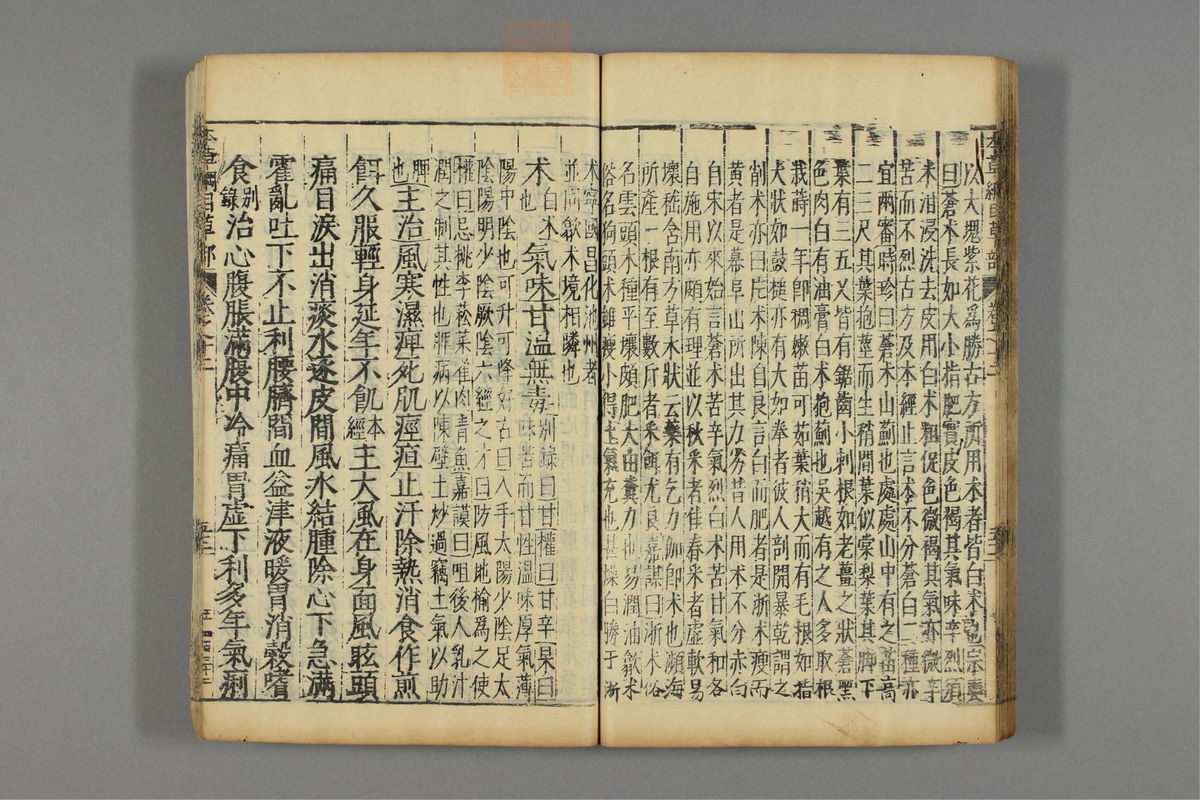 本草綱目草部 卷之十二
以大塊紫花爲勝古方所用朮者皆白朮也宗奭
曰蒼朮長如大小指肥實皮色褐其氣味辛烈須
米泔浸洗去皮用白朮粗促色微褐其氣亦微辛
苦而不烈古方及本經止言朮不分蒼白二種亦
宜兩審時珍曰蒼朮山薊也處處山中有之苗高
二三尺其葉抱莖而生稍間葉似棠梨葉其脚下
葉有三五叉皆有鋸齒小刺根如老薑之狀蒼黑
色肉白有油膏白朮抱薊也吳越有之人多取根
栽蒔一年卽稠嫩苗可茹葉稍大而有毛根如指
大狀如鼓槌亦有大如拳者彼人剖開暴乾謂之
削朮亦曰片朮陳自良言白而肥者是浙朮瘦而
黃者是幕阜山所出其力劣昔人用朮不分赤白
自宋以來始言蒼朮苦辛氣烈白朮苦甘氣和各
自施用亦頗有理並以秋采者佳春采者虛軟易
壞嵇含南方草木狀云藥有乞力伽卽朮也瀕海
所產一根有至數斤者采餌尤良嘉謨曰浙朮俗
名雲頭朮種平壤頗肥大由糞力也易潤油歙朮
俗名狗頭朮雖瘦小得土氣充也甚燥白勝于浙
朮寧國昌化池州者
並同歙朮境相隣也
朮白朮也氣味甘温無毒別錄曰甘權曰甘辛杲曰
味苦而甘性溫味厚氣薄
陽中陰也可升可降好古曰入手太陽少陰足太
陰陽明少陰厥陰六經之才曰防風地榆爲之使
權曰忌桃李菘菜雀肉青魚嘉謨曰咀後人乳汁
潤之制其性也脾病以陳壁土炒過竊土氣以助
脾也主治風寒濕痺死肌痙疸止汗除熱消食作煎
餌久服輕身延年不飢本經主大風在身面風眩頭
痛目淚出消痰水逐皮間風水結腫除心下急滿
霍亂吐下不止利腰臍間血益津液暖胃消穀嗜
食別錄治心腹脹滿腹中冷痛胃虛下利多年氣痢
本草綱目草部 卷之十二